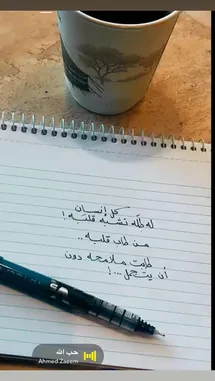 كل إنسان
له طلّه تشبه قلبه !
من طاب قلبه ..
طابت ملامحه دون
أن يتجمل ...!
حب الله
Ahmed Zaeem